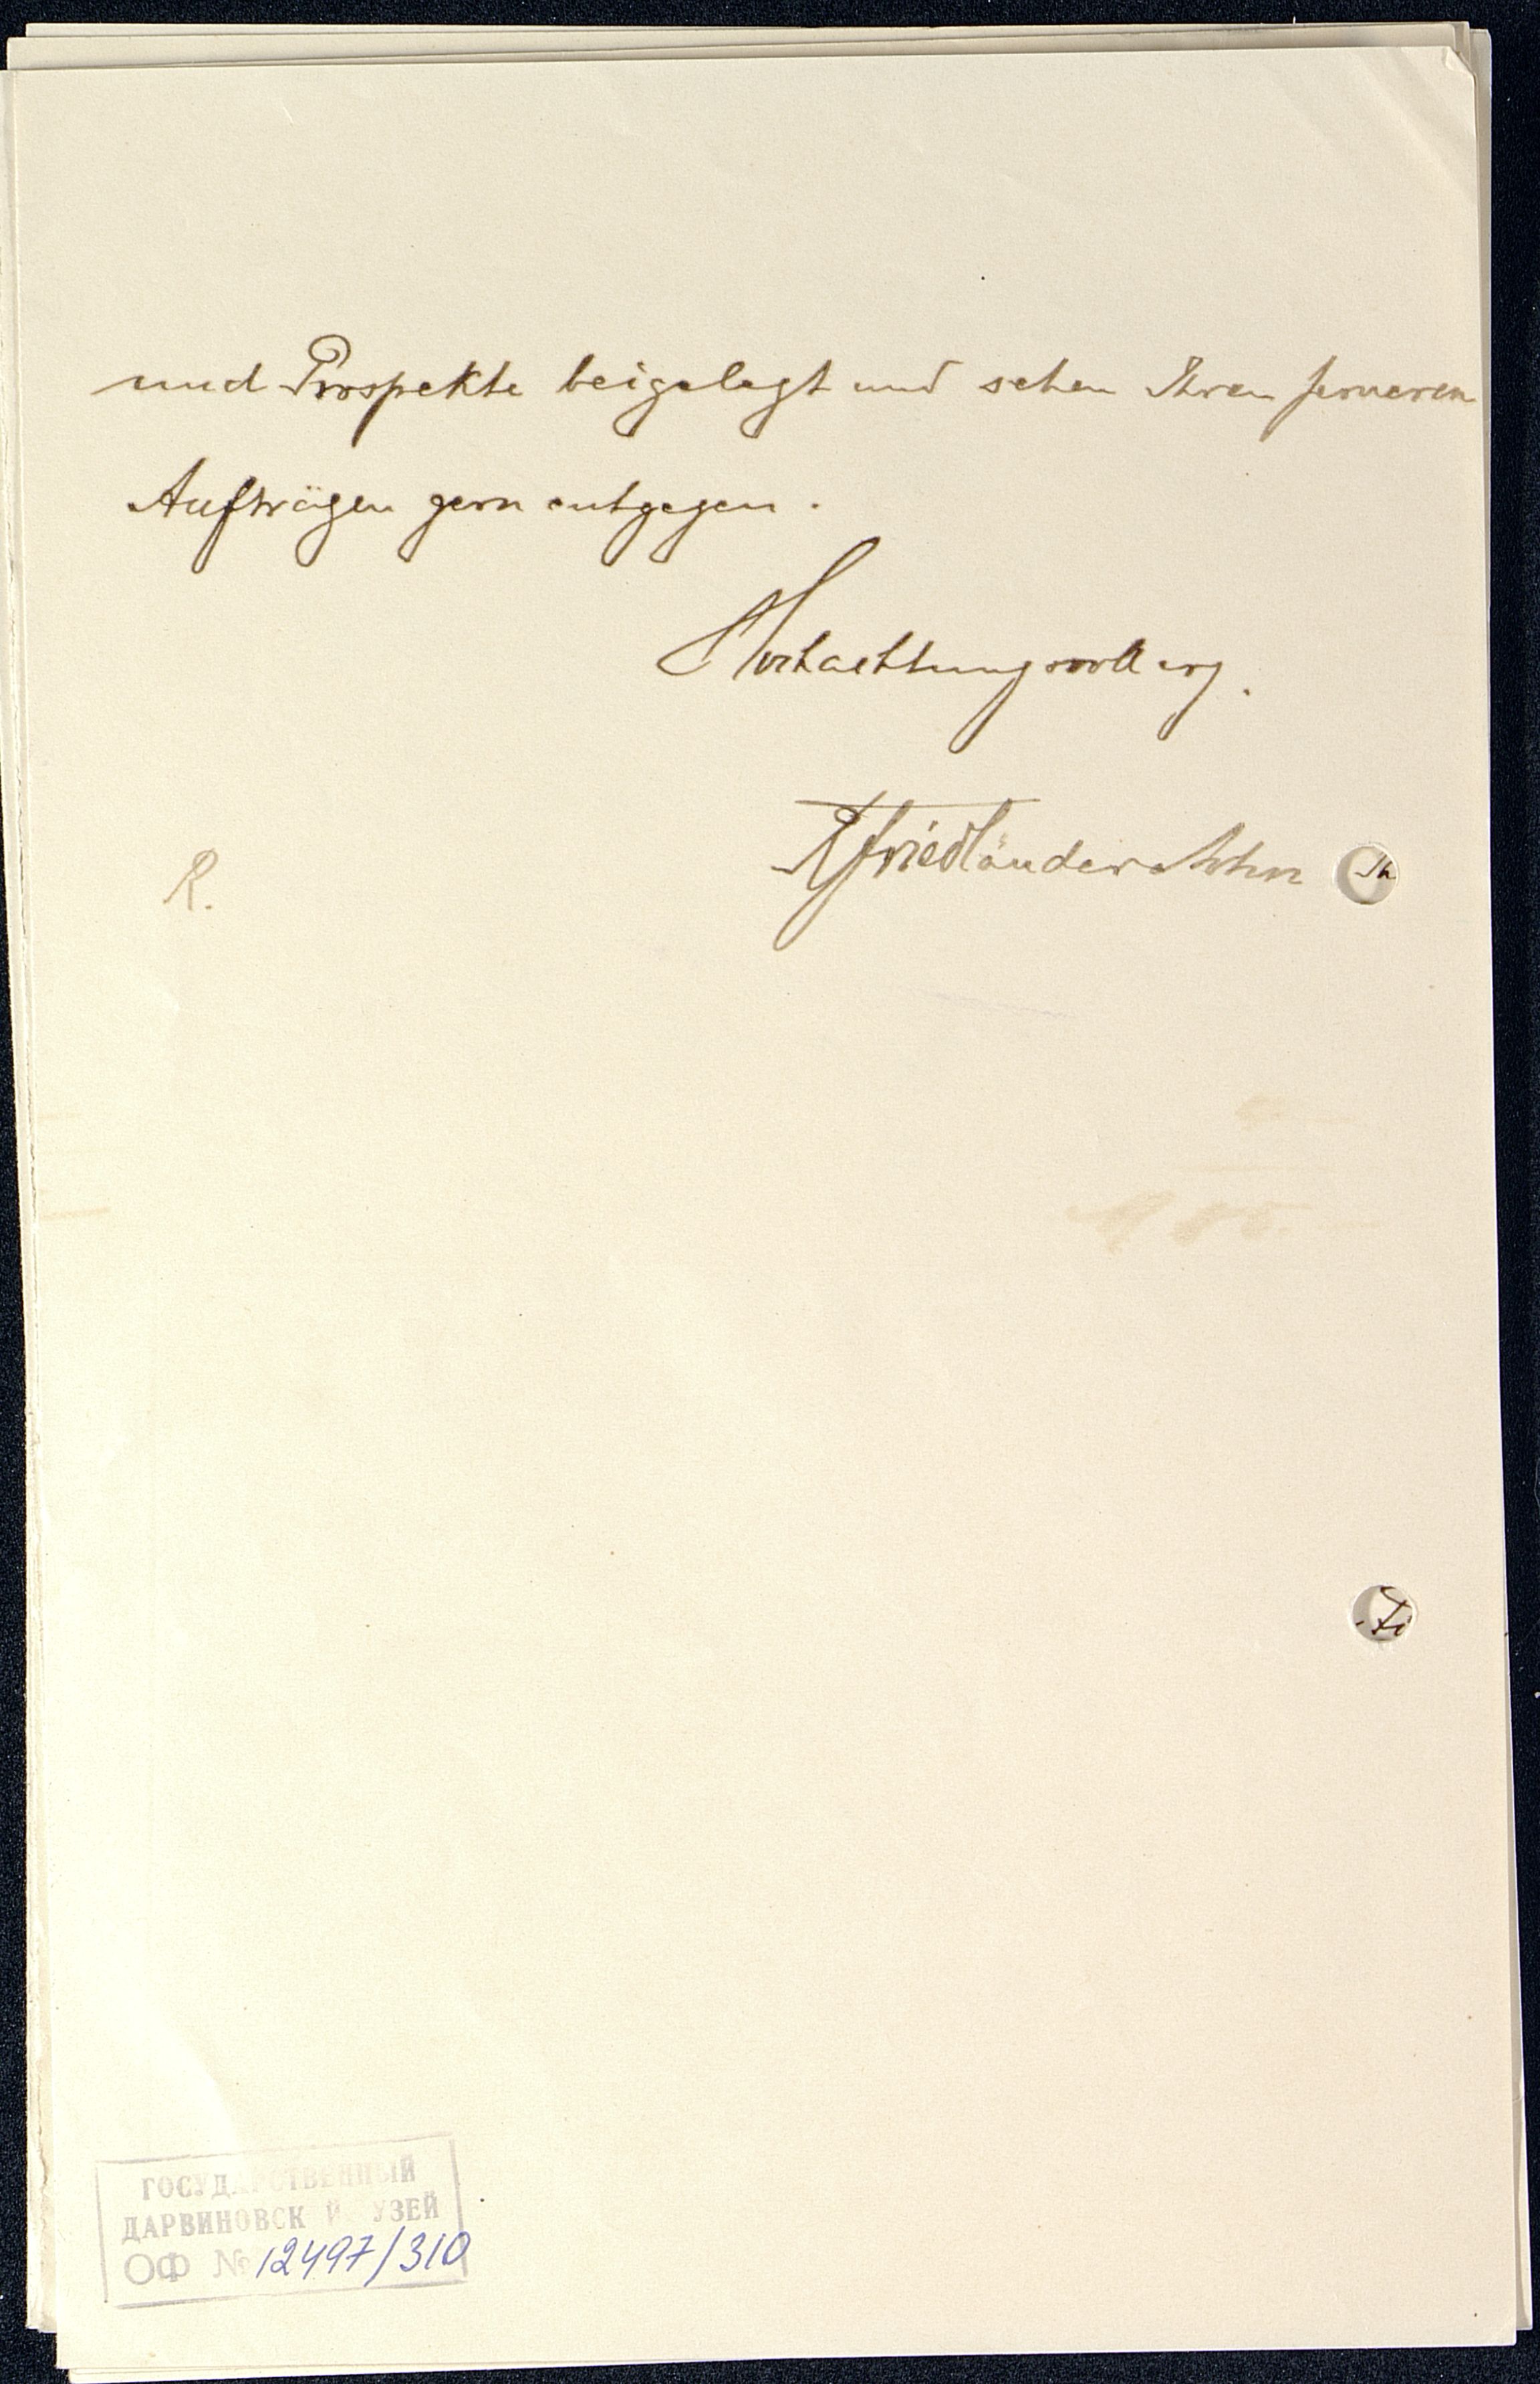 und Prospekte beigelegt und sehen Ihren ferneren
Aufträgen gern entgegen.
Hochachtungsvoll erg.
R Friedländer & Sohn
R.
ГОСУДАРСТВЕННЫЙ
ДАРВИНОВСК Й УЗЕЙ
ОФ № 12497/310